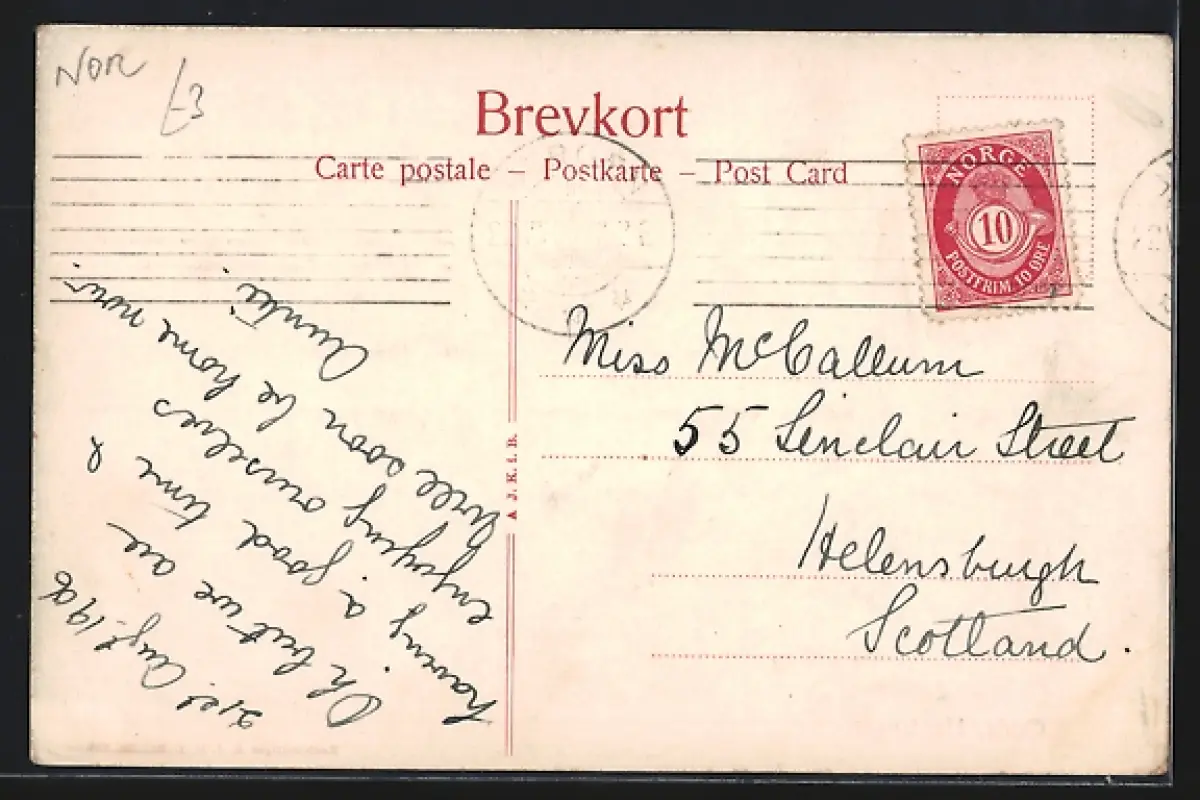 NOR
£3
Brevkort
Carte postale – Postkarte – Post Card
NORGE
10
POSTFRIM. 10 ØRE
A. J. K. i. B.
Miss McCallum
55 Sinclair Street
Helensburgh
Scotland.
21st Augt. 1906
Oh but we are
having a good time &
enjoying ourselves
will soon be home now
Auntie